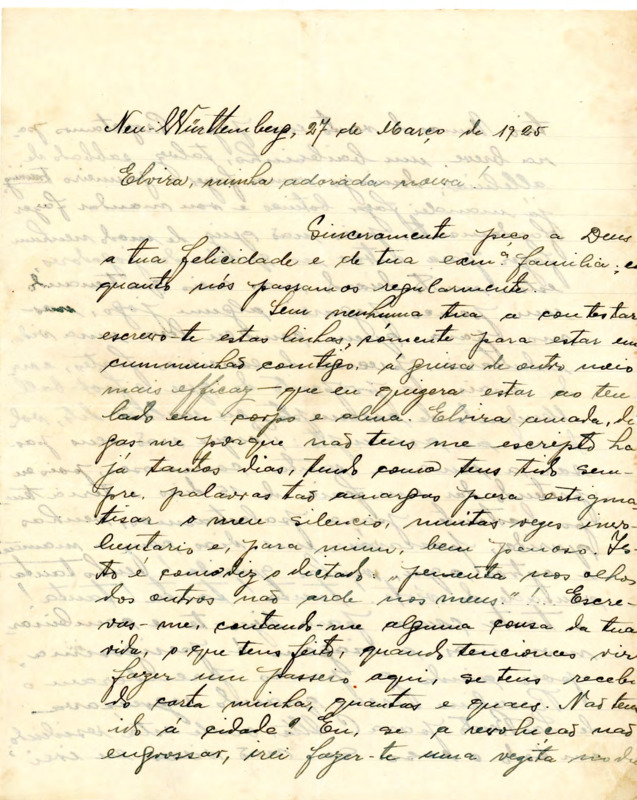 Neu-Württemberg, 27 de Março de 1925
Elvira, minha adorada noiva!
Sinceramente peço a Deus
a tua felicidade e de tua exmª familia; e
quanto nós passamos regularmente.
Sem nenhuma tua a contestar
escrevo-te estas linhas, sómente para estar em
cummunhão comtigo, á guisa de outro meio
mais efficaz — que eu quizera estar ao teu
lado em corpo e alma. Elvira amada, di-
gas-me porque não tens me escripto ha
já tantos dias, tendo como tens tido sem-
pre, palavras tão amargas para estigma-
tisar o meu silencio, muitas vezes invo-
luntario e, para mim, bem penoso. Is-
to é como diz o dictado: „pementa nos olhos
dos outros não arde nos meus."! Escre-
vas-me, contando-me alguma cousa da tua
vida, o que tens feito, quando tencionas vir
fazer um passeio aqui, se tens recebi-
do carta minha, quantas e quaes. Não tens
ido á cidade? Eu, se a revolução não
engrossar, irei fazer-te uma vezita